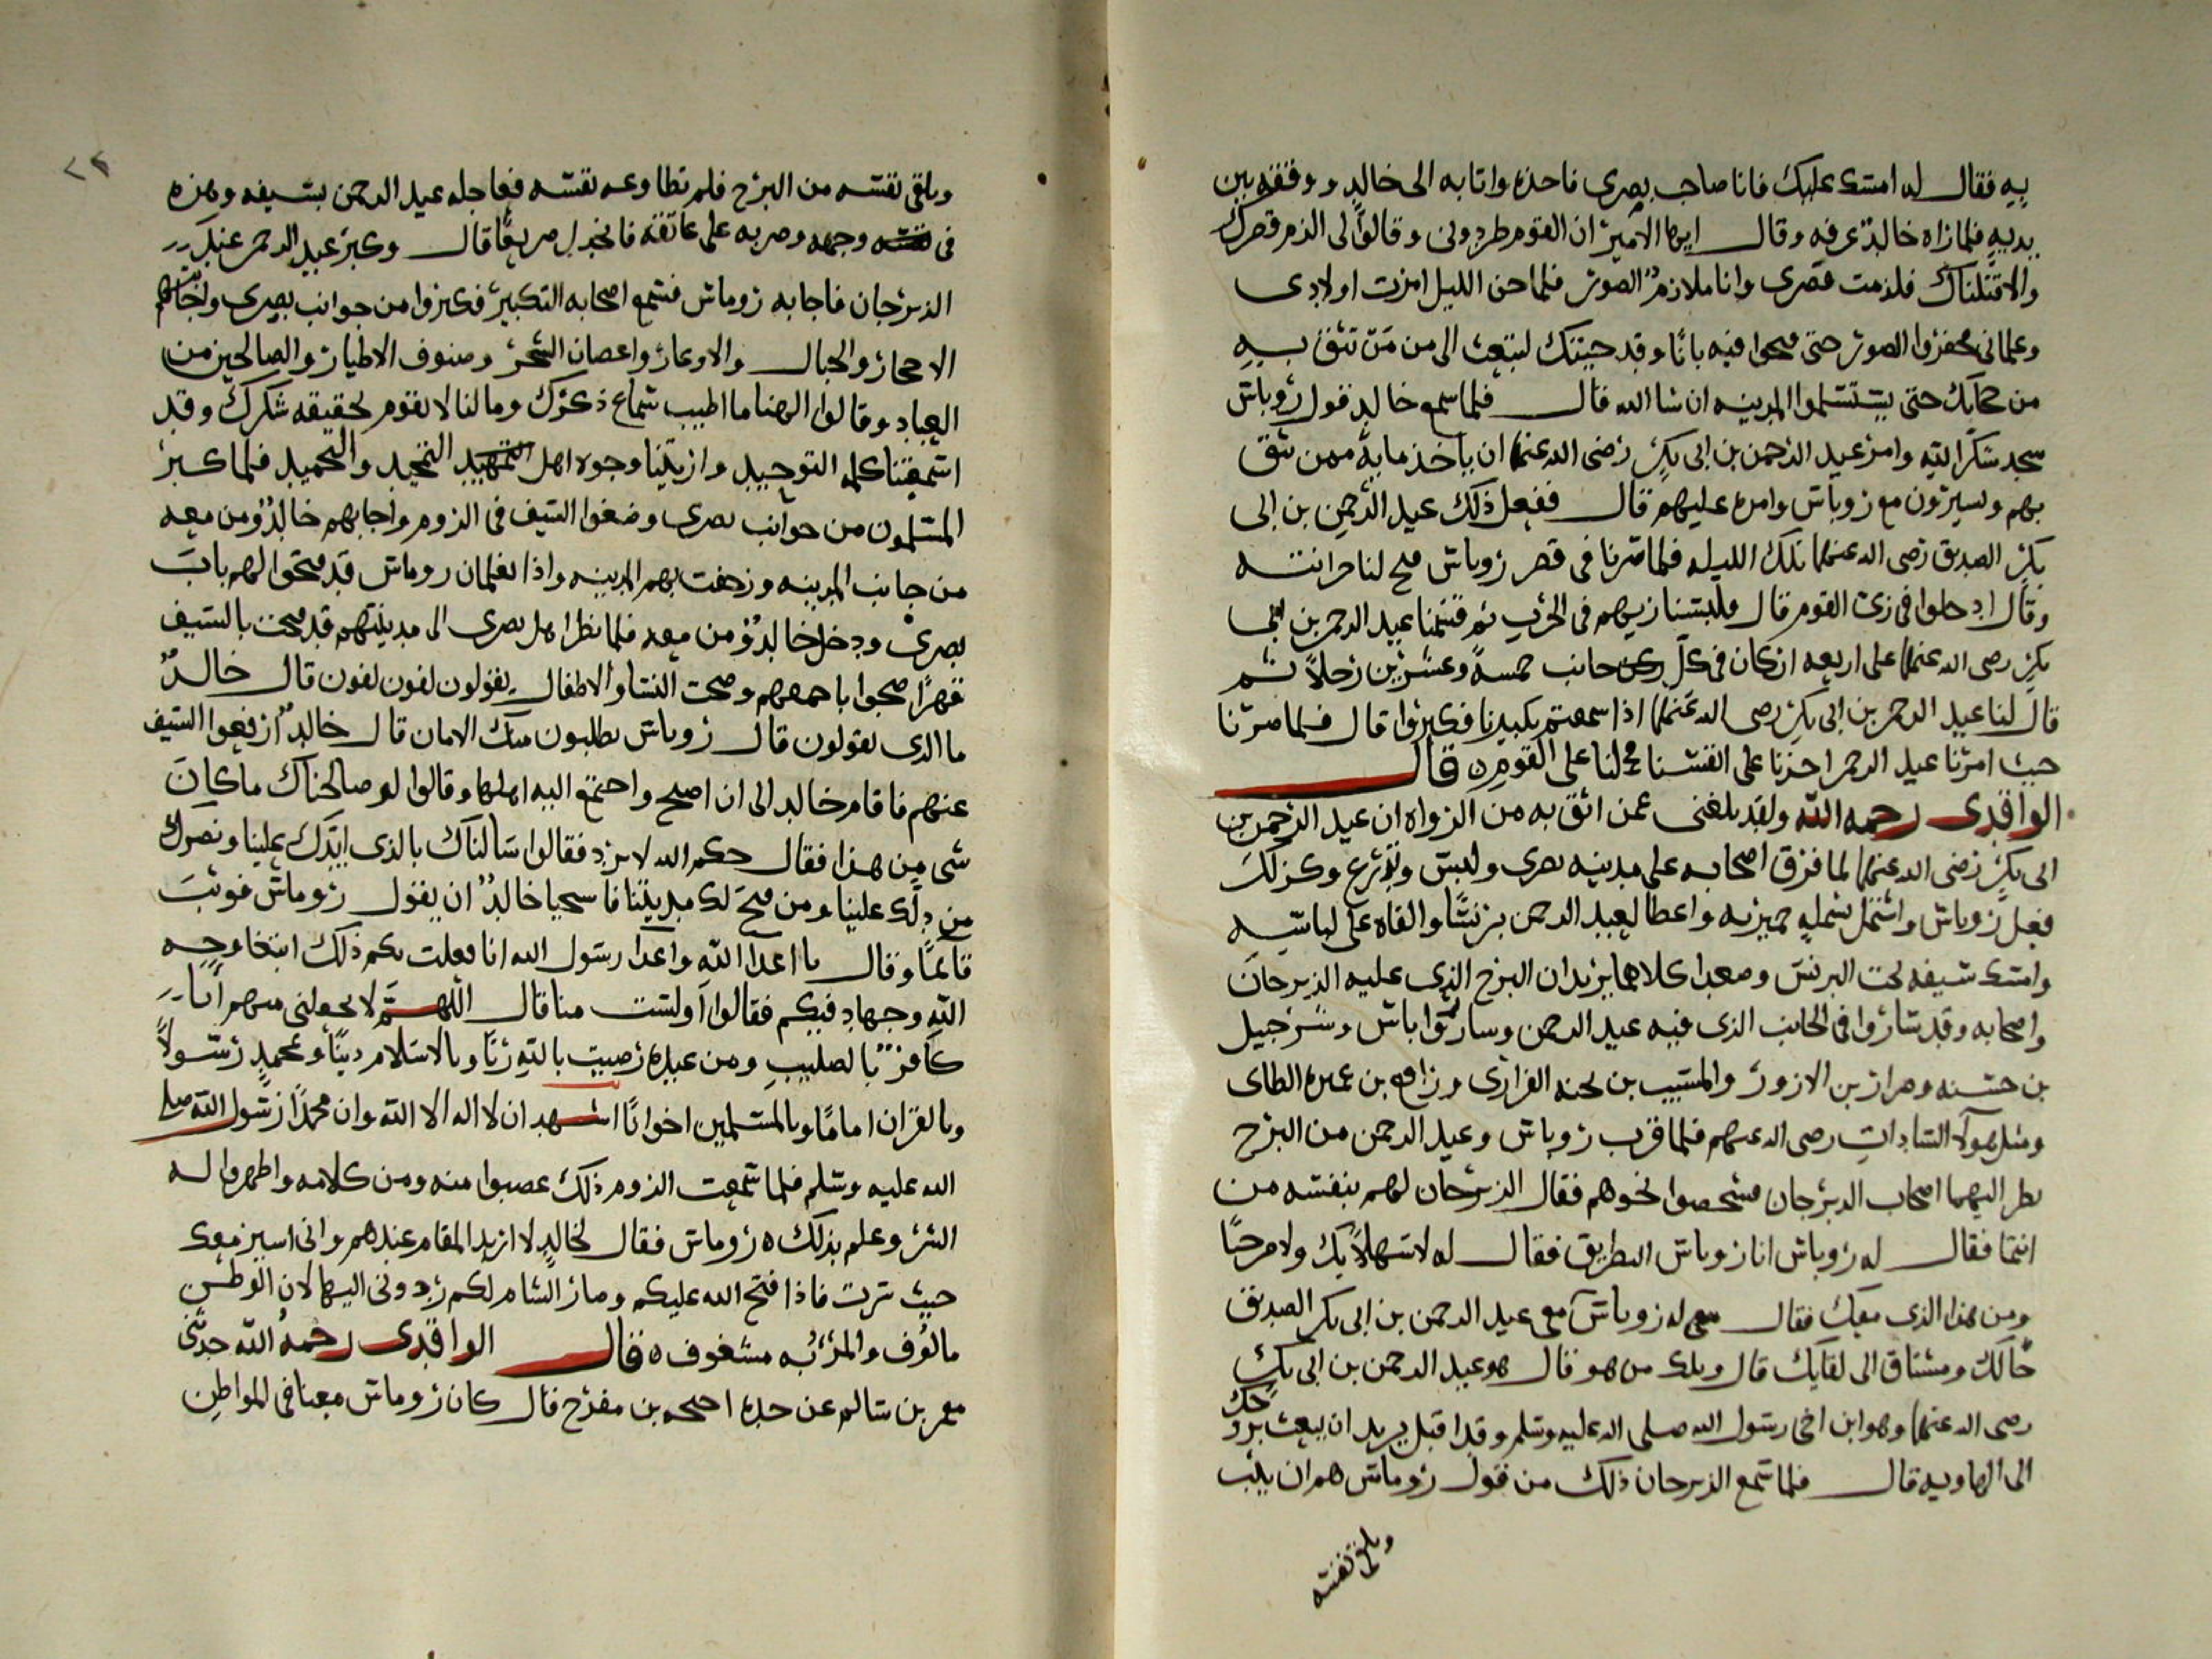 بيه فقال له امسك عليك فانا صاحب بصرى فاخذه واتا به الى خالد ووقفه بين
يديه فلما راه خالد عرفه وقال ايها الامير ان القوم طردونى وقالوا لى الزم قصرك
والا قتلناك فلزمت قصرى وانا ملازم الصور فلما جن الليل امرت اولادى
وغلمانى فحفروا الصور حتى فتحوا فيه بابا وقد جيتك لتبعث الى من من تثق به
من صحابك حتى يستسلموا المدينه ان شا الله قال فلما سمع خالد قول روباس
سجد شكرا لله وامر عبد الرحمن بن ابى بكر رضى الله عنهما ان ياخذ مايه ممن يثق
بهم ويسيرون مع روباس وامره عليهم قال ففعل ذلك عبد الرحمن بن ابى
بكر الصديق رضى الله عنهما تلك الليله فلما صرنا فى قصر روباس فتح لنا خزانته
وقال ادخلوا فى زى القوم قال فلبسنا زيهم فى الحرب ثم قسمنا عبد الرحمن بن ابى
بكر رضى الله عنهما على اربعه اركان فى كل جانب خمسة وعشرين رجلا ثم
قال لنا عبد الرحمن بن ابى بكر رضى الله عنهما اذا سمعتم تكبيرنا فكبروا قال فلما صرنا
حيث امرنا عبد الرحمن اخذنا على انفسنا فحملنا على القوم ه قال
الواقدى رحمه الله ولقد بلغنى عمن اثق به من الرواه ان عبد الرحمن بن
ابى بكر رضى الله عنهما لما فرق اصحابه على مدينه بصرى ولبس وتدرع وكذلك
فعل روباس واشتمل بشمله واعطا لعبد الرحمن برنسا والقاه على لباسه
وامسك سيفه تحت البرنس وصعدا كلاهما يريدان البرج الذى عليه الديرجان
واصحابه وقد ساروا فى الجانب الذى فيه عبد الرحمن وسار روباس وشرحبيل
بن حسنه وضرار بن الازور والمسيب بن نجبه الفزارى ورافع بن عميره الطاى
ومثل هولا السادات رضى الله عنهم فلما قرب روباس وعبد الرحمن من البرج
نظر اليهما اصحاب الديرجان فشخصوا نحوهم فقال الديرجان لهم بنفسه من
انتما فقال له روباس انا روباس البطريق فقال له لا سهلا بك ولا مرحبا
ومن هذا الذى معك فقال له روباس معى عبد الرحمن بن ابى بكر الصديق
ومشتاق الى لقايك قال ويلك من هو قال هو عبد الرحمن بن ابى بكر
رضى الله عنهما وهو ابن اخى رسول الله صلى الله عليه وسلم وقد اقبل يريد ان يبعث بروحك
الى الهاويه قال فلما سمع الديرجان ذلك من قول روماس هم ان يثب
ويلقى نفسه
٢٢
ويلقى نفسه من البرج فلم تطاوعه نفسه فعاجله عبد الرحمن بسيفه وهزه
فى وجهه وضربه على عاتقه فانجدل صريعا قال وكبر عبد الرحمن عند
الديرجان فاجابه روماس فسمع اصحابه التكبير فكبروا من جوانب بصرى واجابتهم
الاحجار والجبال والاوعار واغصان الشجر وصنوف الاطيار والصالحين من
العباد وقالوا الهنا ما اطيب سماع ذكرك وما لنا لا نقوم لحقيقه شكرك وقد
اسمعتنا كلمه التوحيد واريتنا وجوه اهل التمجيد والتحميد فلما كبر
المسلمون من جوانب بصرى وضعوا السيف فى الروم واجابهم خالد ومن معه
من جانب المدينه وزحفت بهم المدينه واذا بغلمان روماس قد فتحوا لهم باب
بصرى ودخل خالد ومن معه فلما نظر اهل بصرى الى مدينتهم قد فتحت بالسيف
قهرا ضجوا باجمعهم وضجت النسا والاطفال يقولون لفون لفون قال خالد
ما الذى يقولون قال روماس يطلبون منك الامان قال خالد ارفعوا السيف
عنهم فاقام خالد الى ان اصبح واجتمع اليه اهلها وقالوا لو صالحناك ما كان
شى من هذا فقال حكم الله لا يرد فقالوا سالناك بالذى ايدك علينا ونصرك
من دلك علينا ومن فتح لك مدينتنا فاستحيا خالد ان يقول روماس فوثب
قايما وقال يا اعدا الله واعدا رسول الله انا فعلت بكم ذلك ابتغا وجه
الله وجهاد فيكم فقالوا اولست منا قال اللهم لا تجعلنى منهم انا
كافر بالصليب ومن عبده رضيت بالله ربا وبالاسلام دينا وبمحمد رسولا
وبالقران اماما وبالمسلمين اخوانا اشهد ان لا اله الا الله وان محمدا رسول الله صلى
الله عليه وسلم فلما سمعت الروم ذلك غضبوا منه ومن كلامه واظهروا له
الشر وعلم بذلك روماس فقال لخالد لا اريد المقام عندهم وانى اسير معك
حيث سرت فاذا فتح الله عليكم وصار الشام لكم ردونى اليها لان الوطن
مالوف والمر به مشغوف ه فقال الواقدى رحمه الله حدثنى
معمر بن سالم عن جده بن مفرح قال كان روماس معنا فى المواطن